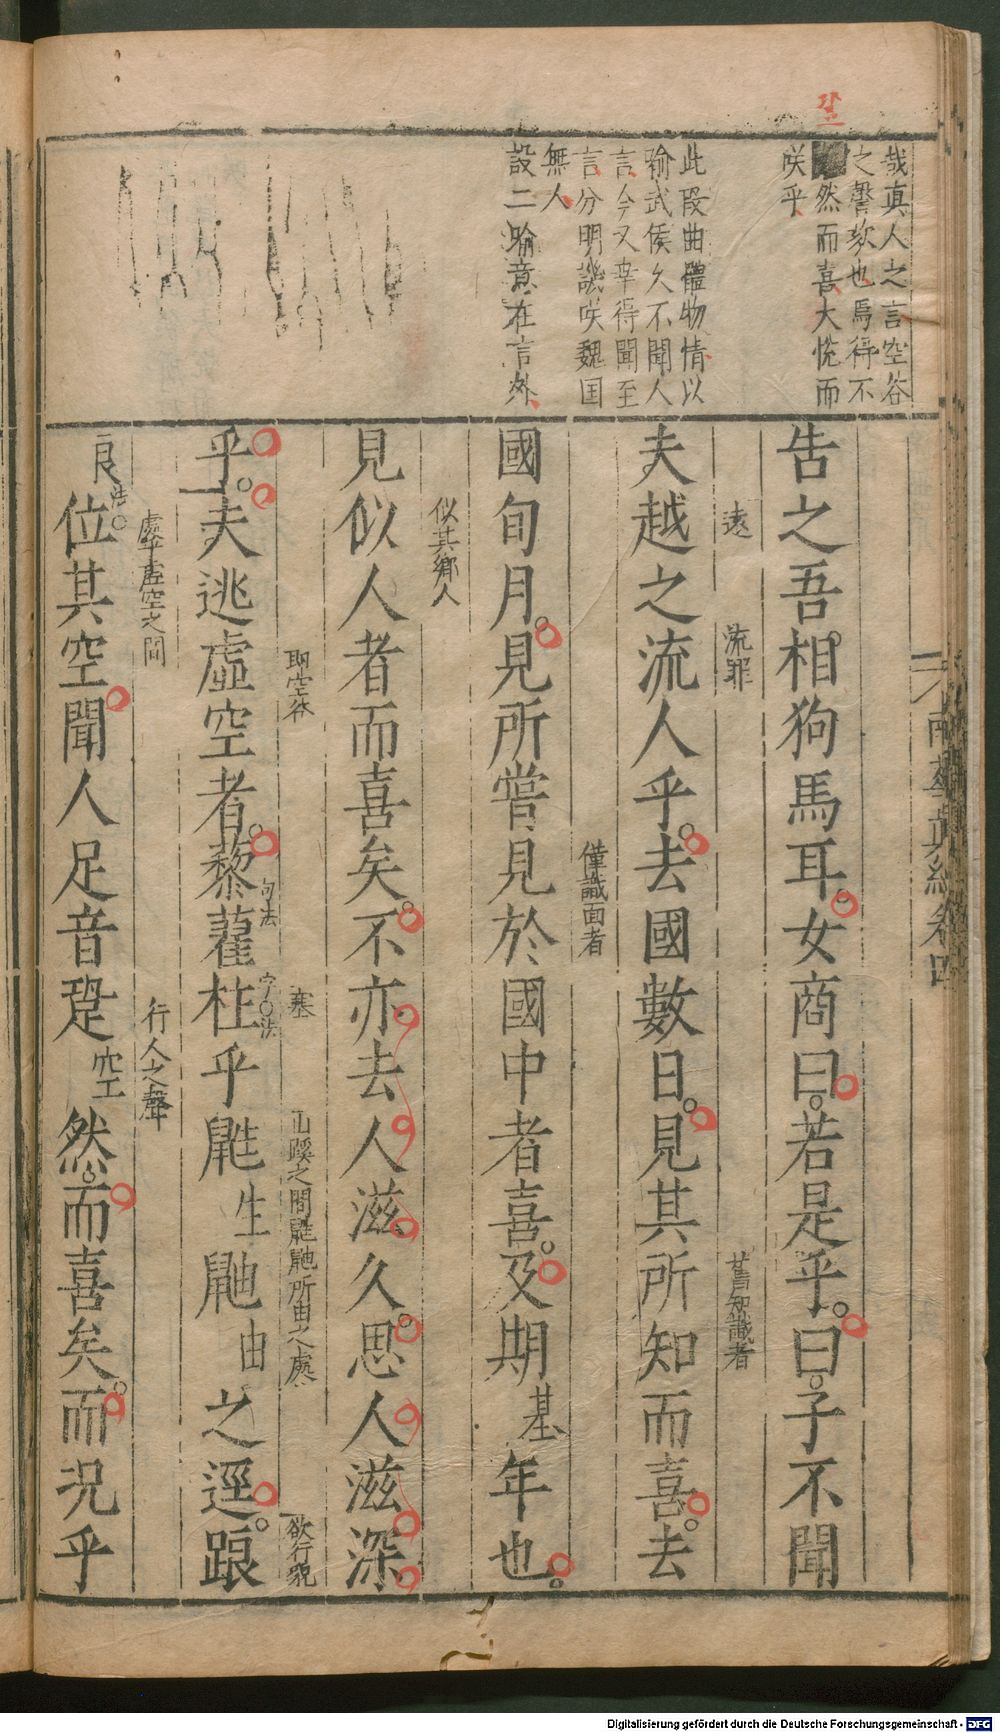 哉真人之言空谷
之謦欬也焉得不
然而喜大悅而
咲乎
此段曲體物情以
喻武侯久不聞人
言今又幸得聞至
言分明譏咲魏国
無人
設二喻意在言外
告之吾相狗馬耳女商曰若是乎曰子不聞
遠 流罪 旧知識者
夫越之流人乎去國數日見其所知而喜去
僅識面者
國旬月見所嘗見於國中者喜及期基年也
似其鄉人
見似人者而喜矣不亦去人滋久思人滋深
即空谷 塞 山蹊之間鼪鼬所由之處 欲行貌
乎夫逃虛空者藜藋柱乎鼪生鼬由之逕踉
句法 字法
處乎虛空之間 行人之聲
良位其空聞人足音跫空然而喜矣而況乎
法
南華真經卷四
Digitalisierung gefördert durch die Deutsche Forschungsgemeinschaft - DFG